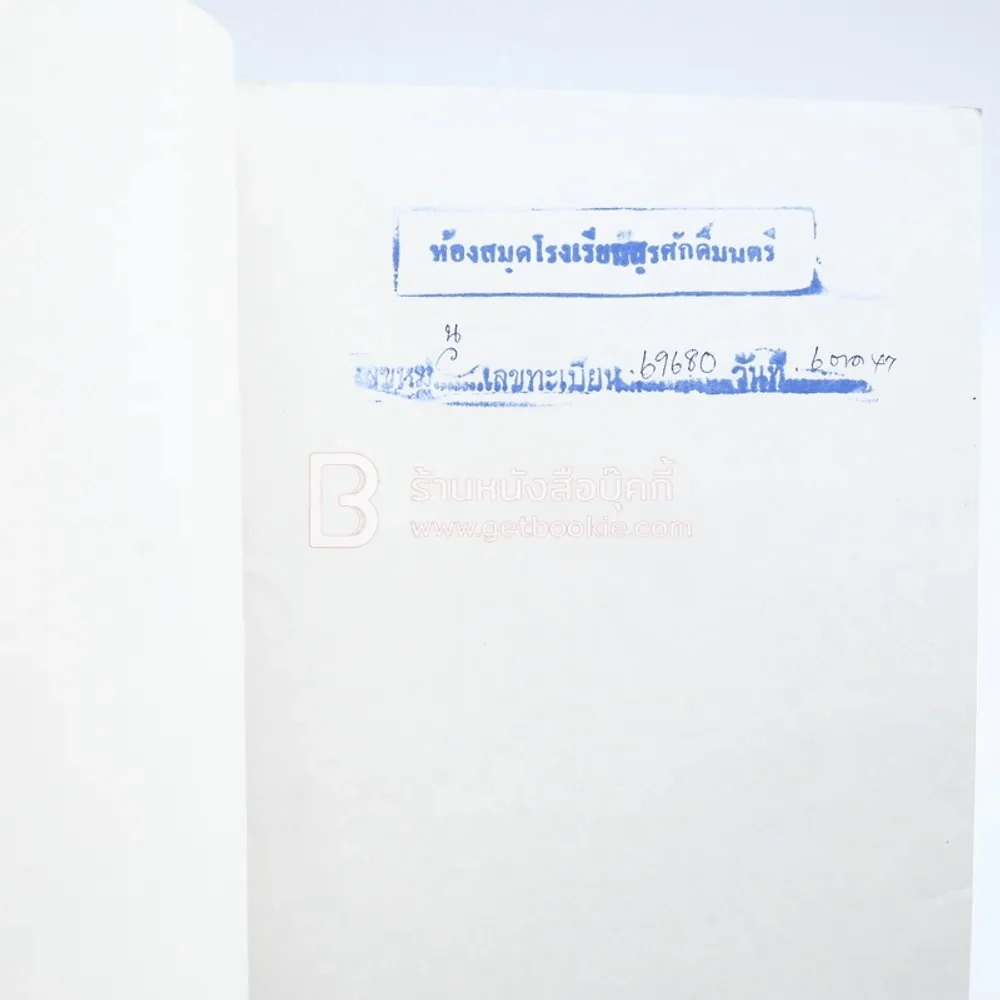 ห้องสมุดโรงเรียนสุรศักดิ์มนตรี
น
เลขหมู่ เลขทะเบียน 69680 วันที่ ๖ ตค ๔๗
ร้านหนังสือบุ๊คกี้
www.getbookie.com